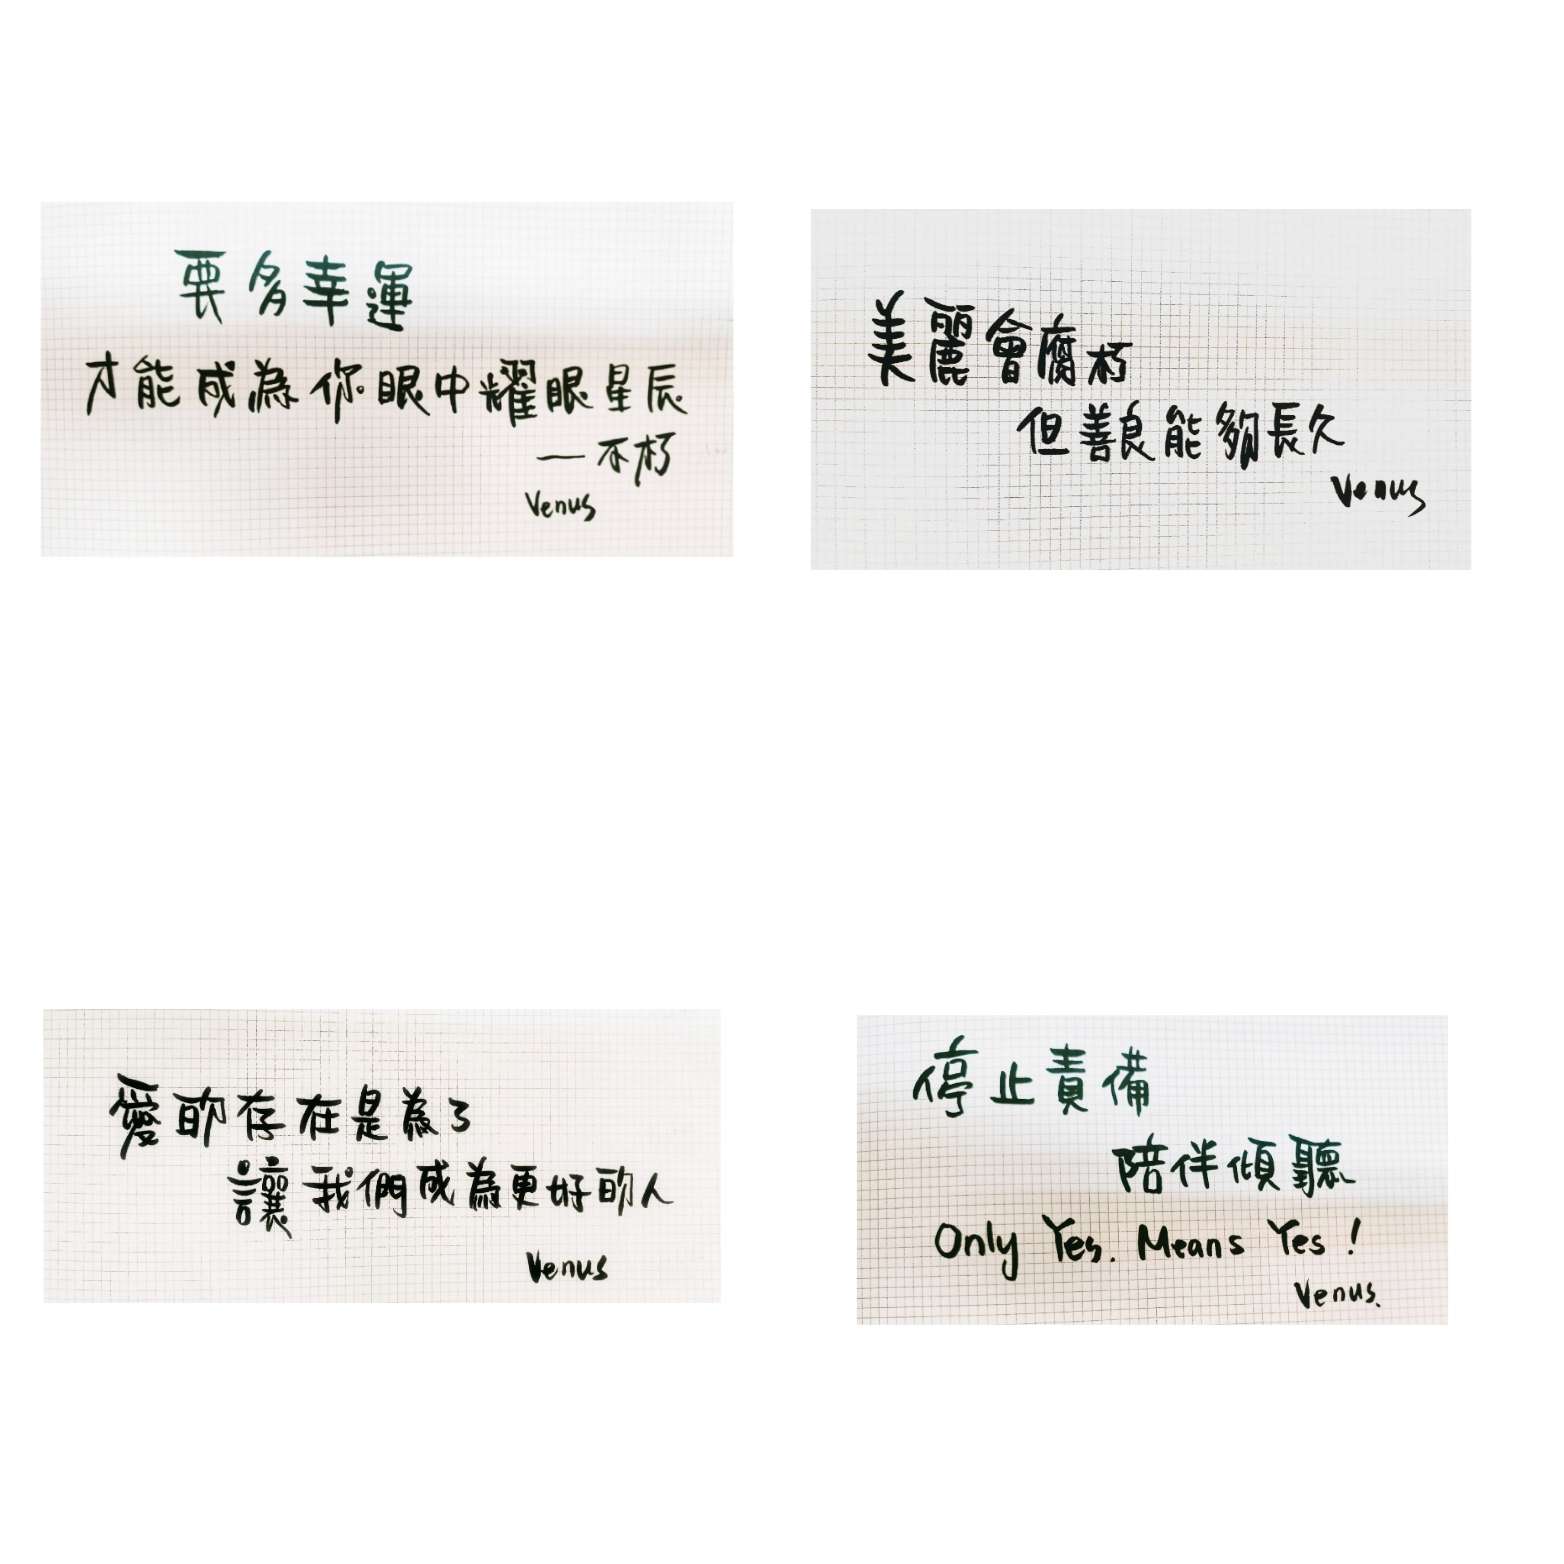 要多幸運
才能成為你眼中耀眼星辰
—不朽
Venus
美麗會腐朽
但善良能夠長久
Venus
愛的存在是為了
讓我們成為更好的人
Venus
停止責備
陪伴傾聽
Only Yes. Means Yes!
Venus.